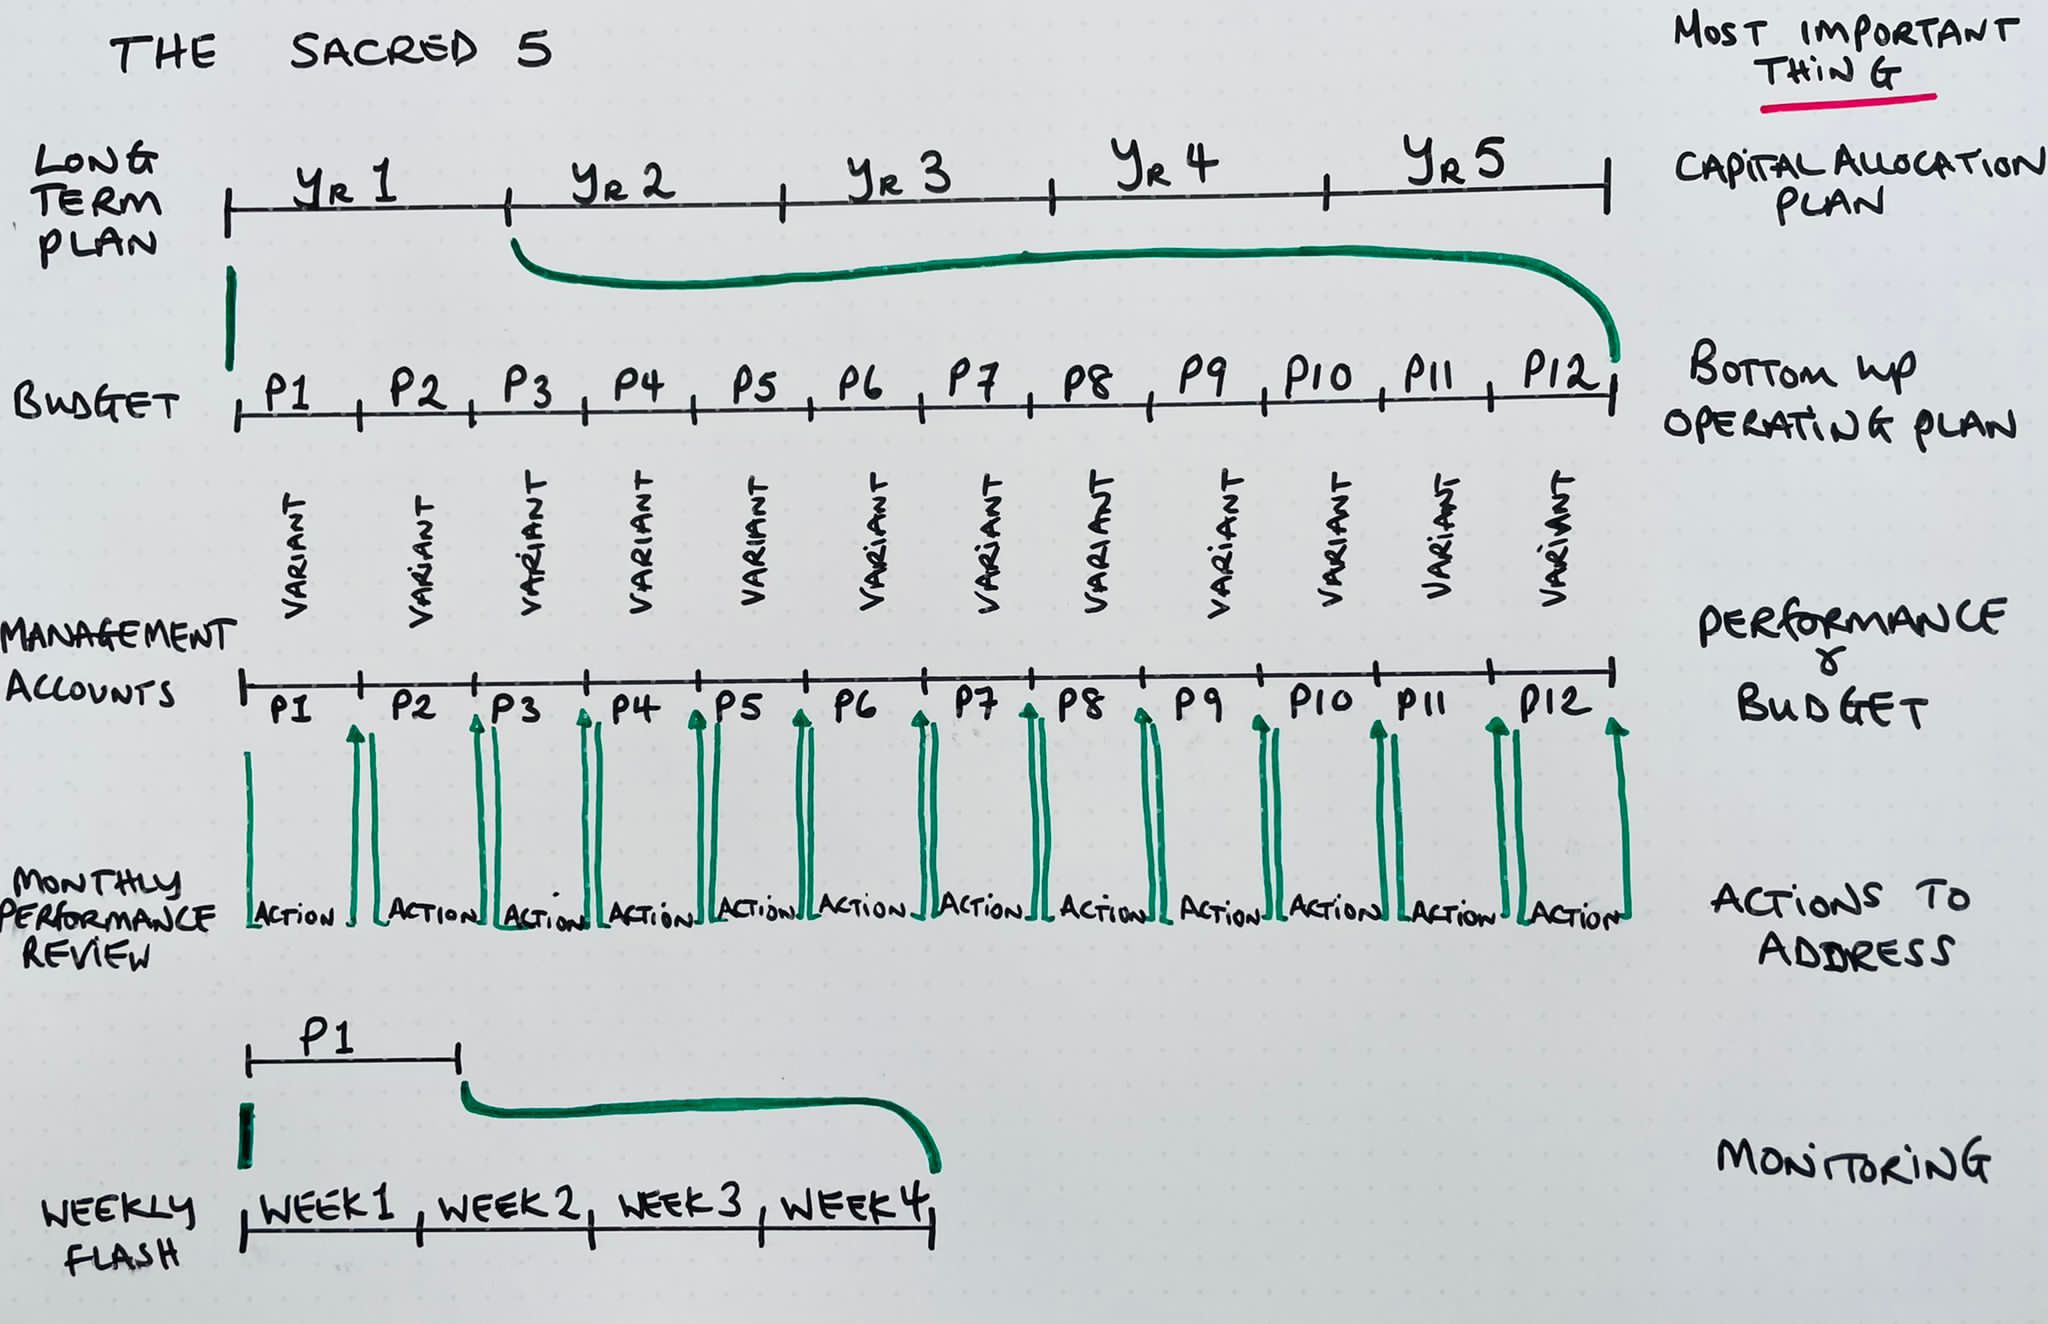 THE SACRED 5
MOST IMPORTANT
THING
LONG
TERM
PLAN
YR 1 YR 2 YR 3 YR 4 YR 5
CAPITAL ALLOCATION
PLAN
BUDGET
P1 P2 P3 P4 P5 P6 P7 P8 P9 P10 P11 P12
BOTTOM UP
OPERATING PLAN
VARIANT VARIANT VARIANT VARIANT VARIANT VARIANT VARIANT VARIANT VARIANT VARIANT VARIANT VARIANT
MANAGEMENT
ACCOUNTS
P1 P2 P3 P4 P5 P6 P7 P8 P9 P10 P11 P12
PERFORMANCE
BUDGET
MONTHLY
PERFORMANCE
REVIEW
ACTION ACTION ACTION ACTION ACTION ACTION ACTION ACTION ACTION ACTION ACTION ACTION
ACTIONS TO
ADDRESS
P1
MONITORING
WEEKLY
FLASH
WEEK 1 WEEK 2 WEEK 3 WEEK 4